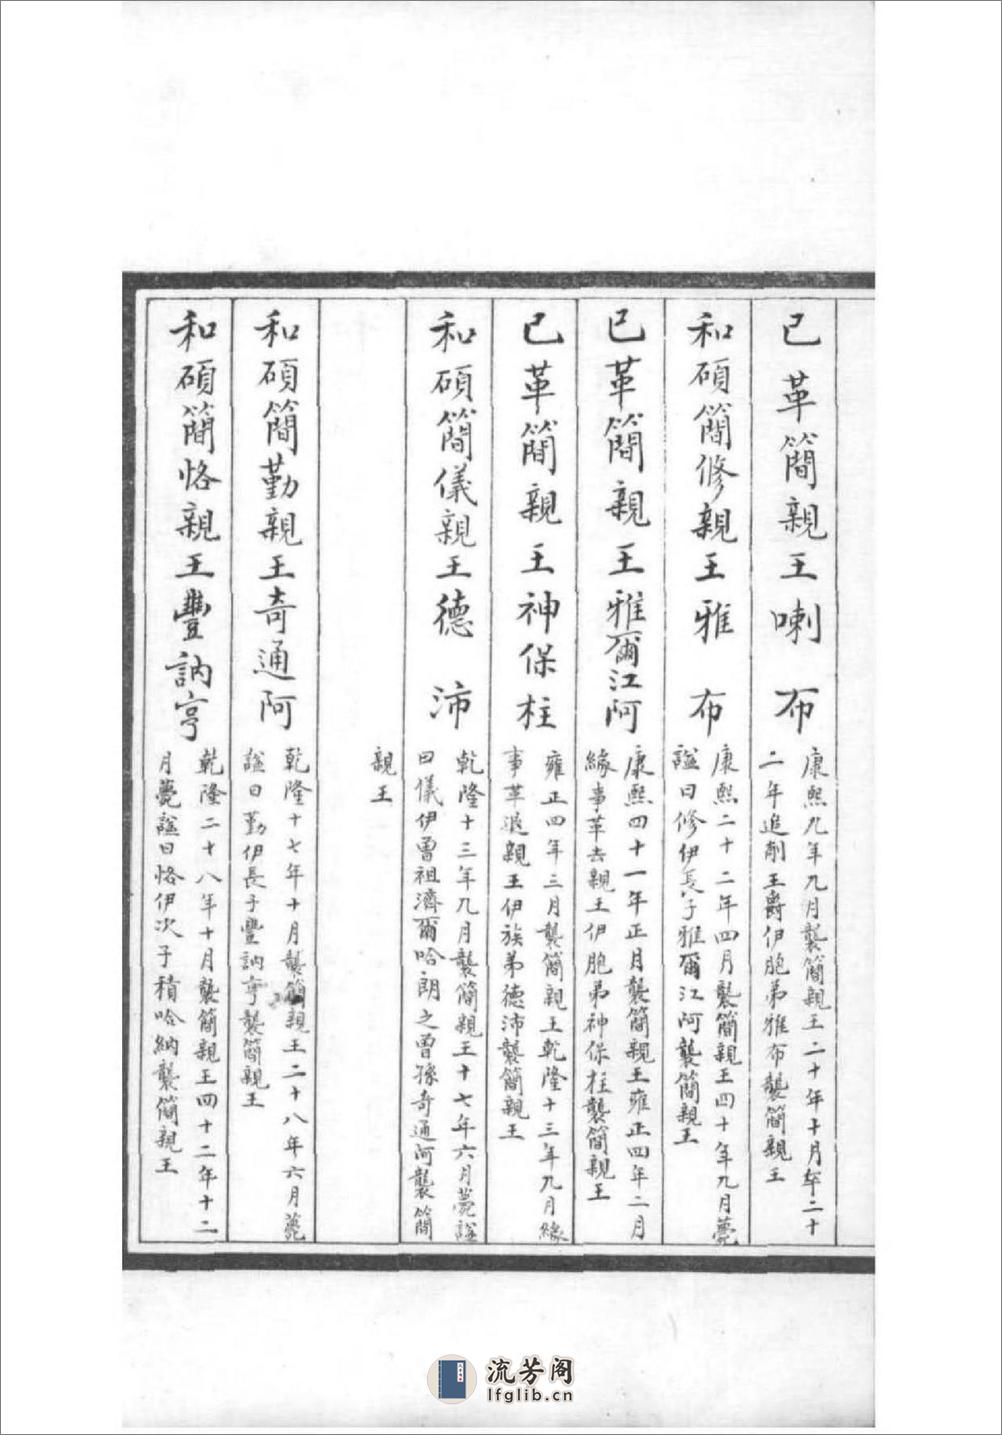 已革簡親王喇布
康熙九年九月襲簡親王二十年十月卒二十
二年追削王爵伊胞弟雅布襲簡親王
和碩簡修親王雅布
康熙二十二年四月襲簡親王四十年九月薨
諡曰修伊長子雅爾江阿襲簡親王
已革簡親王雅爾江阿
康熙四十一年正月襲簡親王雍正四年二月
緣事革去親王伊胞弟神保柱襲簡親王
已革簡親王神保柱
雍正四年三月襲簡親王乾隆十三年九月緣
事革退親王伊族弟德沛襲簡親王
和碩簡儀親王德沛
乾隆十三年九月襲簡親王十七年六月薨諡
曰儀伊曾祖濟爾哈朗之曾孫奇通阿襲簡
親王
和碩簡勤親王奇通阿
乾隆十七年十月襲簡親王二十八年六月薨
諡曰勤伊長子豐訥亨襲簡親王
和碩簡恪親王豐訥亨
乾隆二十八年十月襲簡親王四十二年十二
月薨諡曰恪伊次子積哈納襲簡親王
流芳阁
lfglib.cn